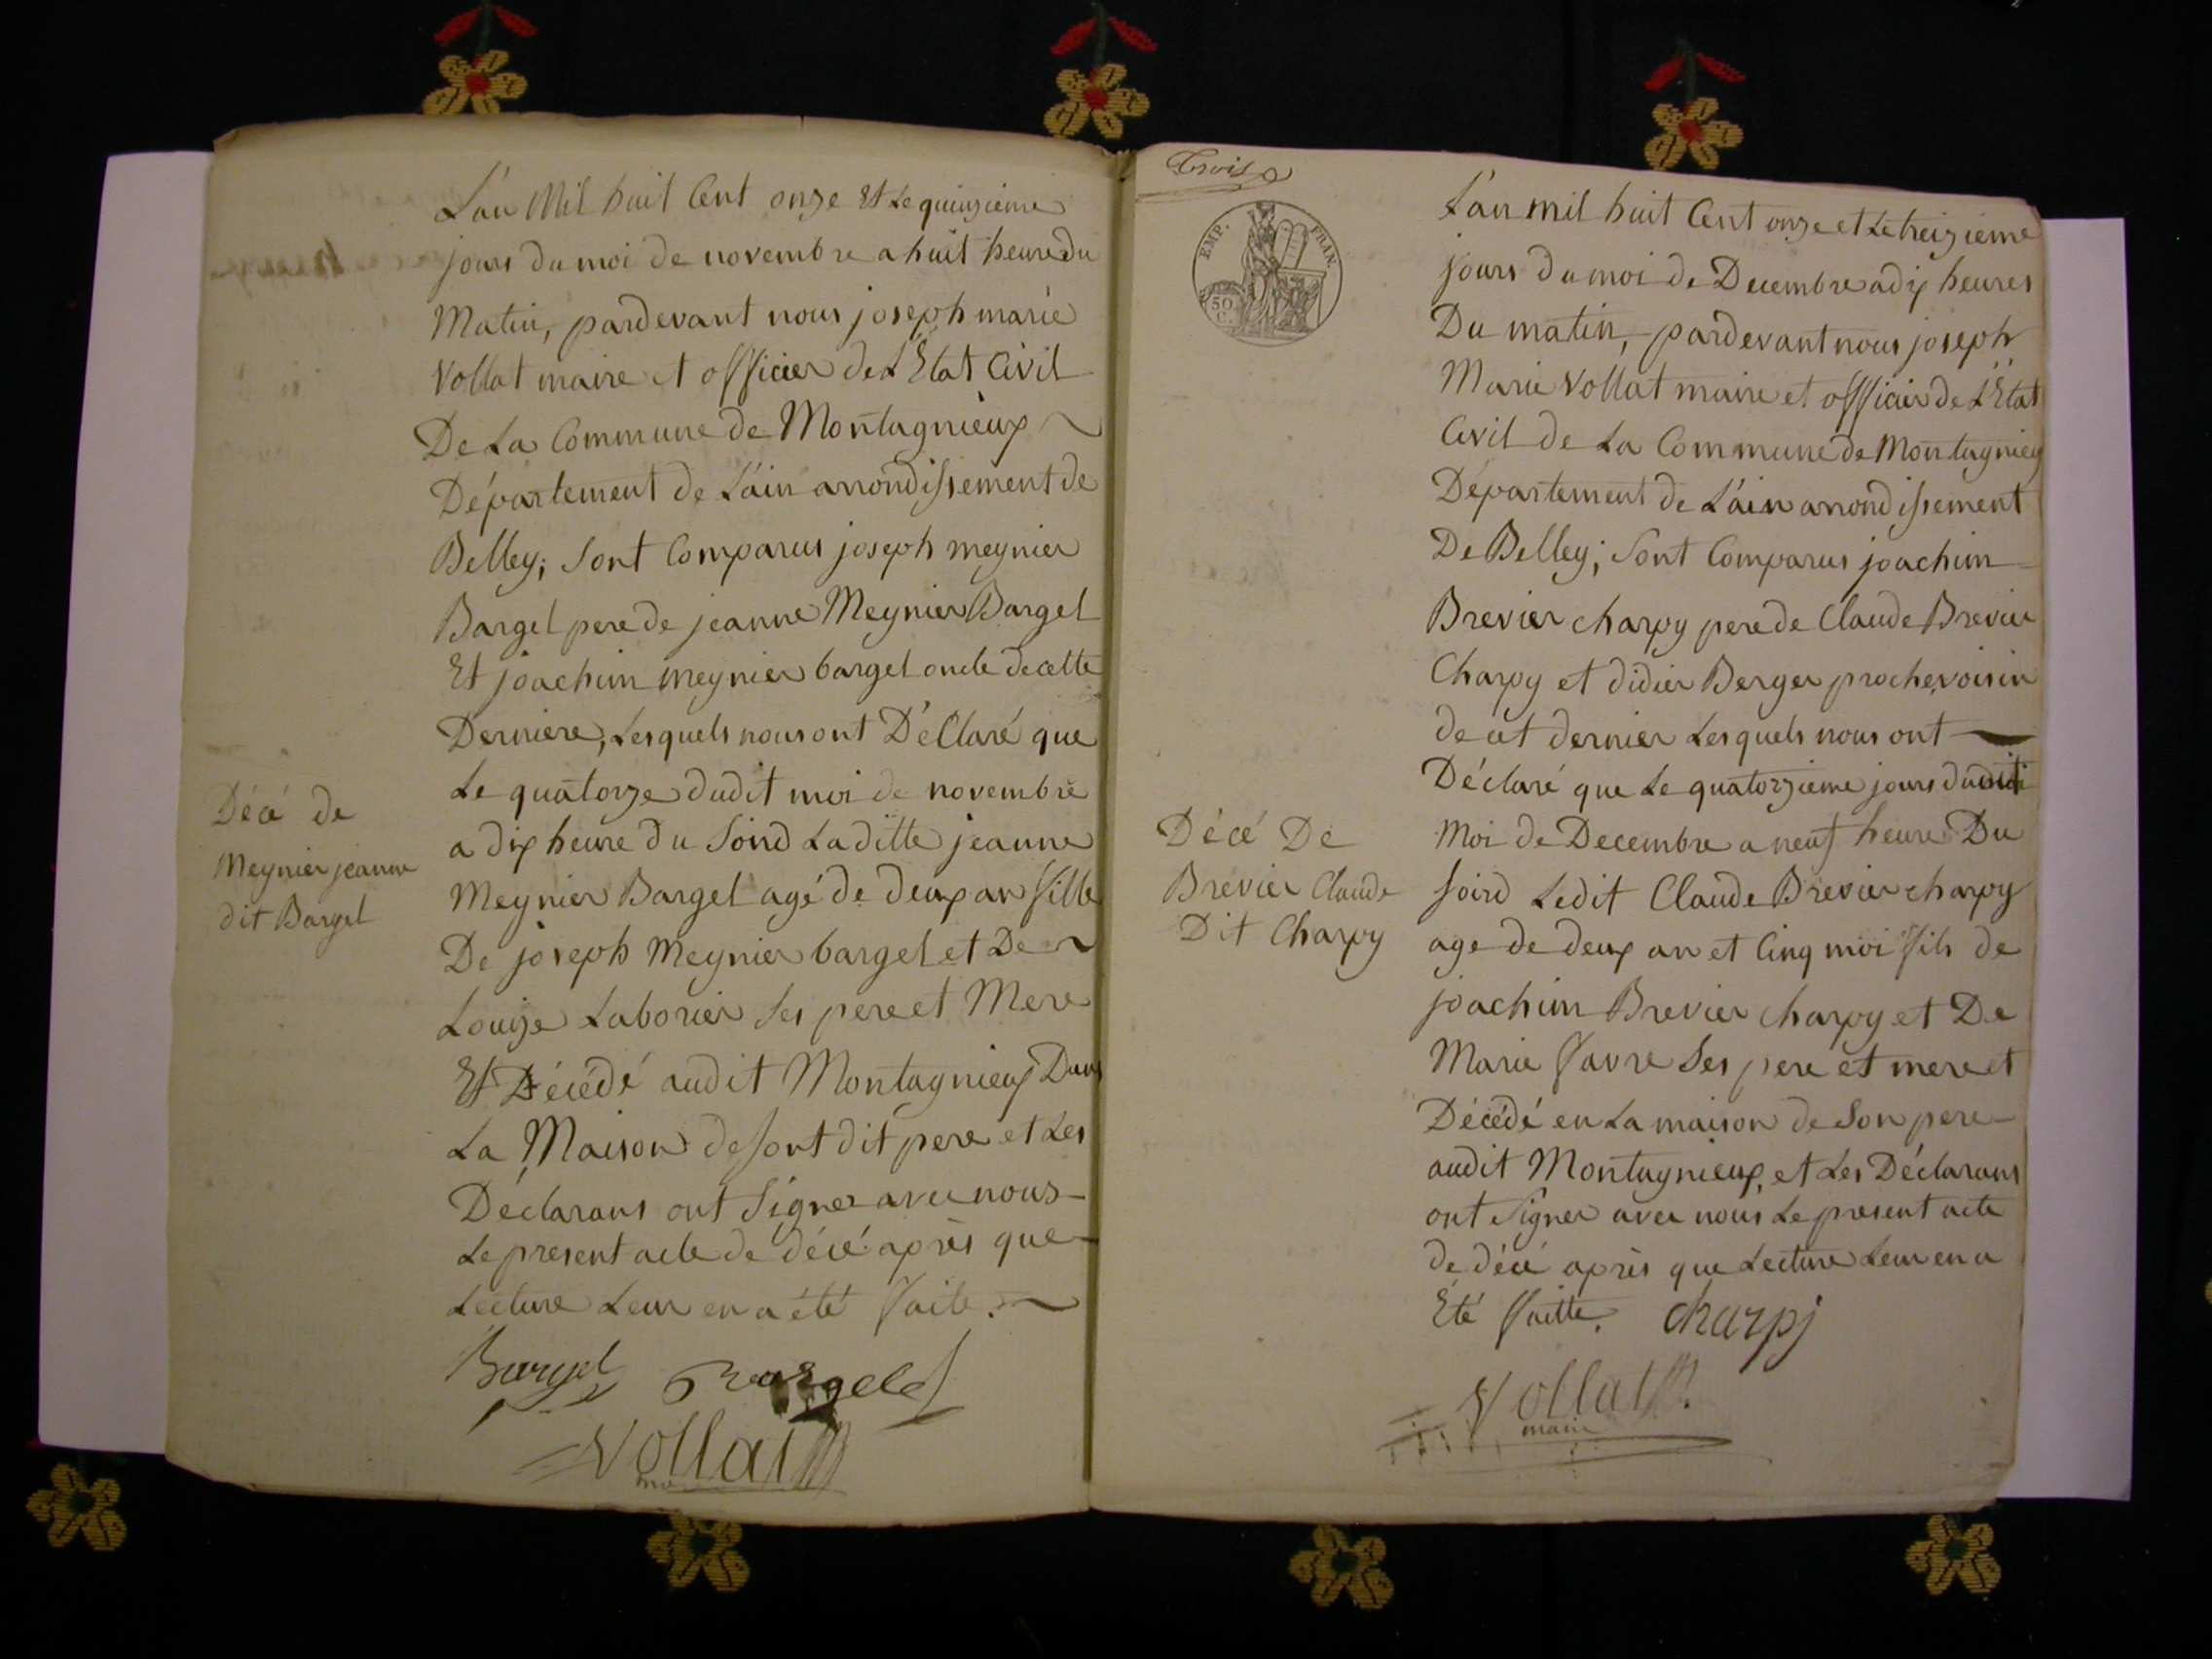 L'an Mil huit Cent onze Et le quinzieme
jours du moi de novembre a huit heure du
Matin, pardevant nous joseph marie
Vollat maire et officier de L'Etat Civil
De La Commune de Montagnieux
Département de L'ain arrondissement de
Belley; sont Comparus joseph meynier
Bargel pere de jeanne Meynier Bargel
Et joachim meynier bargel oncle de cette
Derniere, Lesquels nous ont Déclaré que
Le quatorze dudit moi de novembre
a dix heure du Soird Laditte jeanne
Meynier Bargel agé de deux an fille
De joseph Meynier bargel et De
Louise Laborier ses pere et Mere
Et Décédé audit Montagnieux Dans
La Maison de sont dit pere et Les
Déclarans ont Signer avec nous
Le present acte de décé après que
Lecture Leur en a été faite.
Décé de
Meynier jeanne
dit Bargel
Bargel Bargel
Vollat
Trois
EMP. FRAN.
50 C.
L'an mil huit Cent onze et Le treizieme
jours du moi de Decembre a dix heures
Du matin, pardevant nous joseph
Marie Vollat maire et officier de L'Etat
Civil de La Commune de Montagnieux
Département de L'ain arrondissement
De Belley; Sont Comparus joachim
Brevier charpy pere de Claude Brevier
Charpy et didier Berger proche voisin
de cet dernier Lesquels nous ont
Déclaré que Le quatorzieme jours dudit
Moi de Decembre a neuf heure Du
soird Ledit Claude Brevier charpy
age de deux an et Cinq moi fils de
joachim Brevier charpy et De
Marie favre Ses pere et mere et
Décédé en La maison de Son pere
audit Montagnieux, et Les Déclarans
ont Signer avec nous Le present acte
de décé après que Lecture Leur en a
Eté faitte. charpj
Décé De
Brevier Claude
Dit Charpy
Vollat
maire